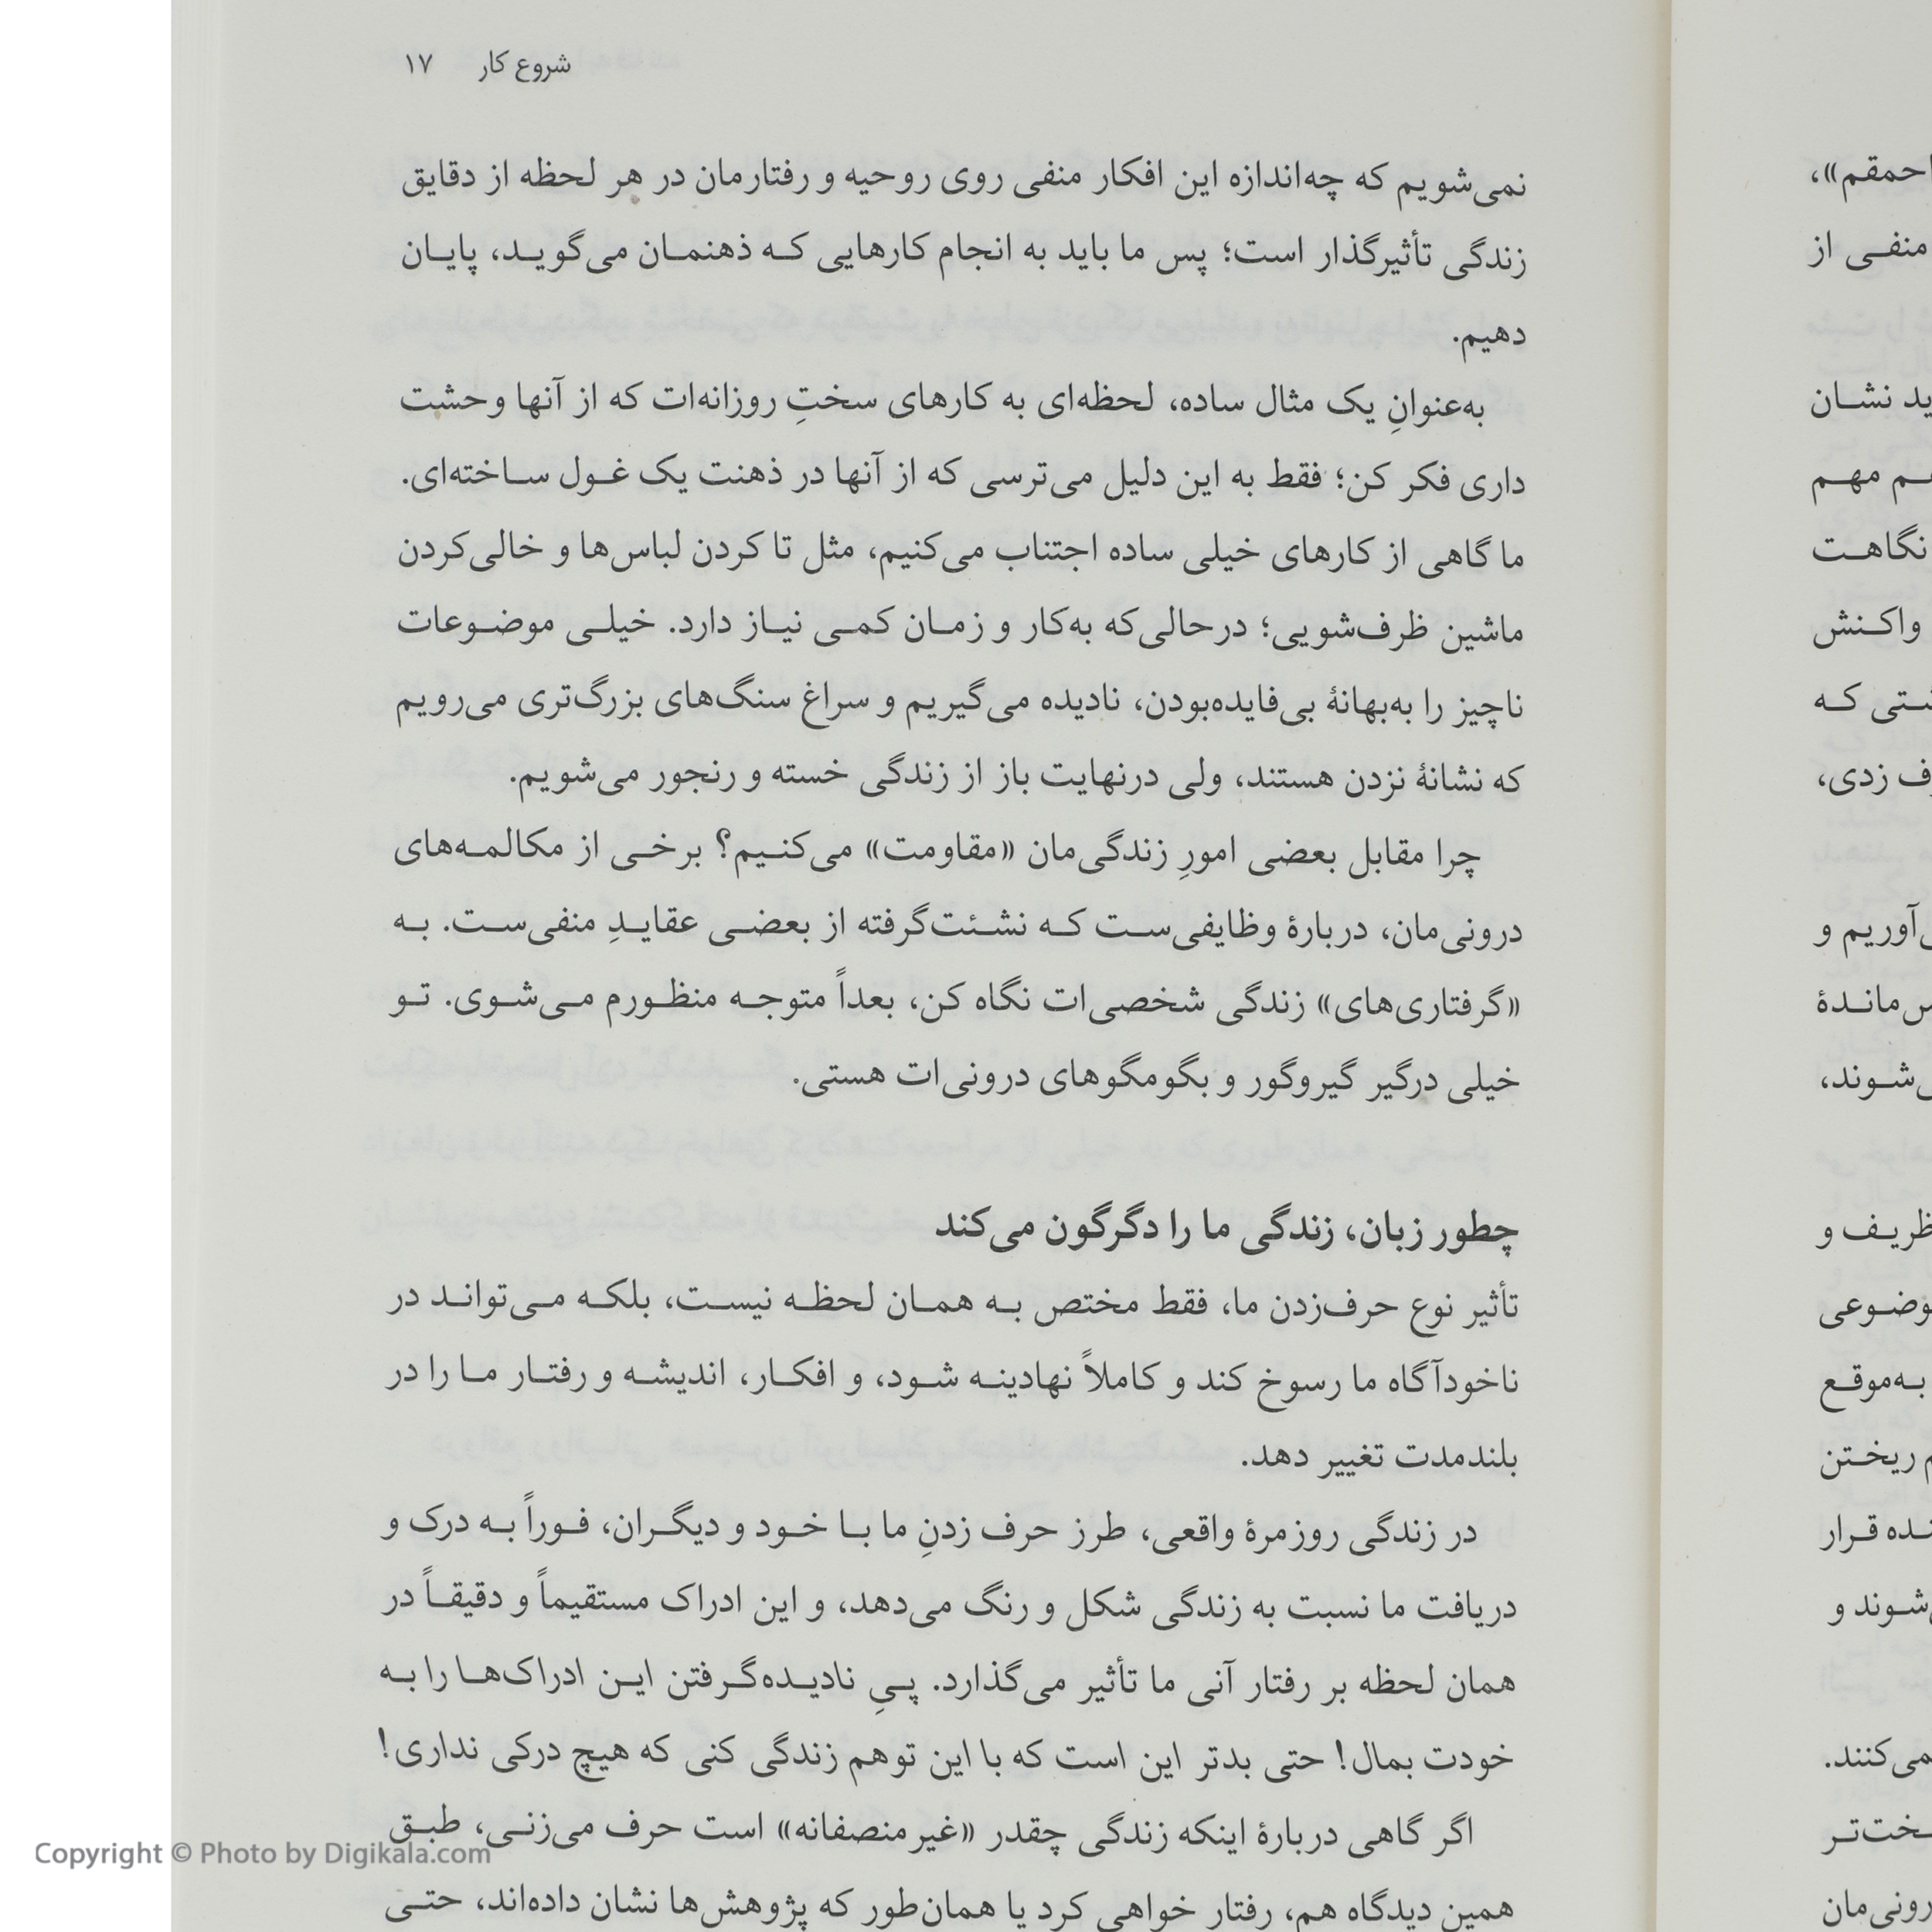 شروع کار ۱۷
نمی‌شویم که چه‌اندازه این افکار منفی روی روحیه و رفتارمان در هر لحظه از دقایق
زندگی تأثیرگذار است؛ پس ما باید به انجام کارهایی که ذهنمان می‌گوید، پایان
دهیم.
به‌عنوانِ یک مثال ساده، لحظه‌ای به کارهای سختِ روزانه‌ات که از آنها وحشت
داری فکر کن؛ فقط به این دلیل می‌ترسی که از آنها در ذهنت یک غول ساخته‌ای.
ما گاهی از کارهای خیلی ساده اجتناب می‌کنیم، مثل تا کردن لباس‌ها و خالی‌کردن
ماشین ظرف‌شویی؛ درحالی‌که به‌کار و زمان کمی نیاز دارد. خیلی موضوعات
ناچیز را به‌بهانهٔ بی‌فایده‌بودن، نادیده می‌گیریم و سراغ سنگ‌های بزرگ‌تری می‌رویم
که نشانهٔ نزدن هستند، ولی درنهایت باز از زندگی خسته و رنجور می‌شویم.
چرا مقابل بعضی امورِ زندگی‌مان «مقاومت» می‌کنیم؟ برخی از مکالمه‌های
درونی‌مان، دربارهٔ وظایفی‌ست که نشئت‌گرفته از بعضی عقایدِ منفی‌ست. به
«گرفتاری‌های» زندگی شخصی‌ات نگاه کن، بعداً متوجه منظورم می‌شوی. تو
خیلی درگیر گیروگور و بگومگوهای درونی‌ات هستی.
چطور زبان، زندگی ما را دگرگون می‌کند
تأثیر نوع حرف‌زدن ما، فقط مختص به همان لحظه نیست، بلکه می‌تواند در
ناخودآگاه ما رسوخ کند و کاملاً نهادینه شود، و افکار، اندیشه و رفتار ما را در
بلندمدت تغییر دهد.
در زندگی روزمرهٔ واقعی، طرز حرف زدنِ ما با خود و دیگران، فوراً به درک و
دریافت ما نسبت به زندگی شکل و رنگ می‌دهد، و این ادراک مستقیماً و دقیقاً در
همان لحظه بر رفتار آنی ما تأثیر می‌گذارد. پیِ نادیده‌گرفتن این ادراک‌ها را به
خودت بمال! حتی بدتر این است که با این توهم زندگی کنی که هیچ درکی نداری!
اگر گاهی دربارهٔ اینکه زندگی چقدر «غیرمنصفانه» است حرف می‌زنی، طبق
همین دیدگاه هم، رفتار خواهی کرد یا همان‌طور که پژوهش‌ها نشان داده‌اند، حتی
احمقم»،
منفی از
نشان
مهم
نگاهت
واکنش
که
زدی،
و
و
به‌موقع
ریختن
قرار
و
Copyright © Photo by Digikala.com